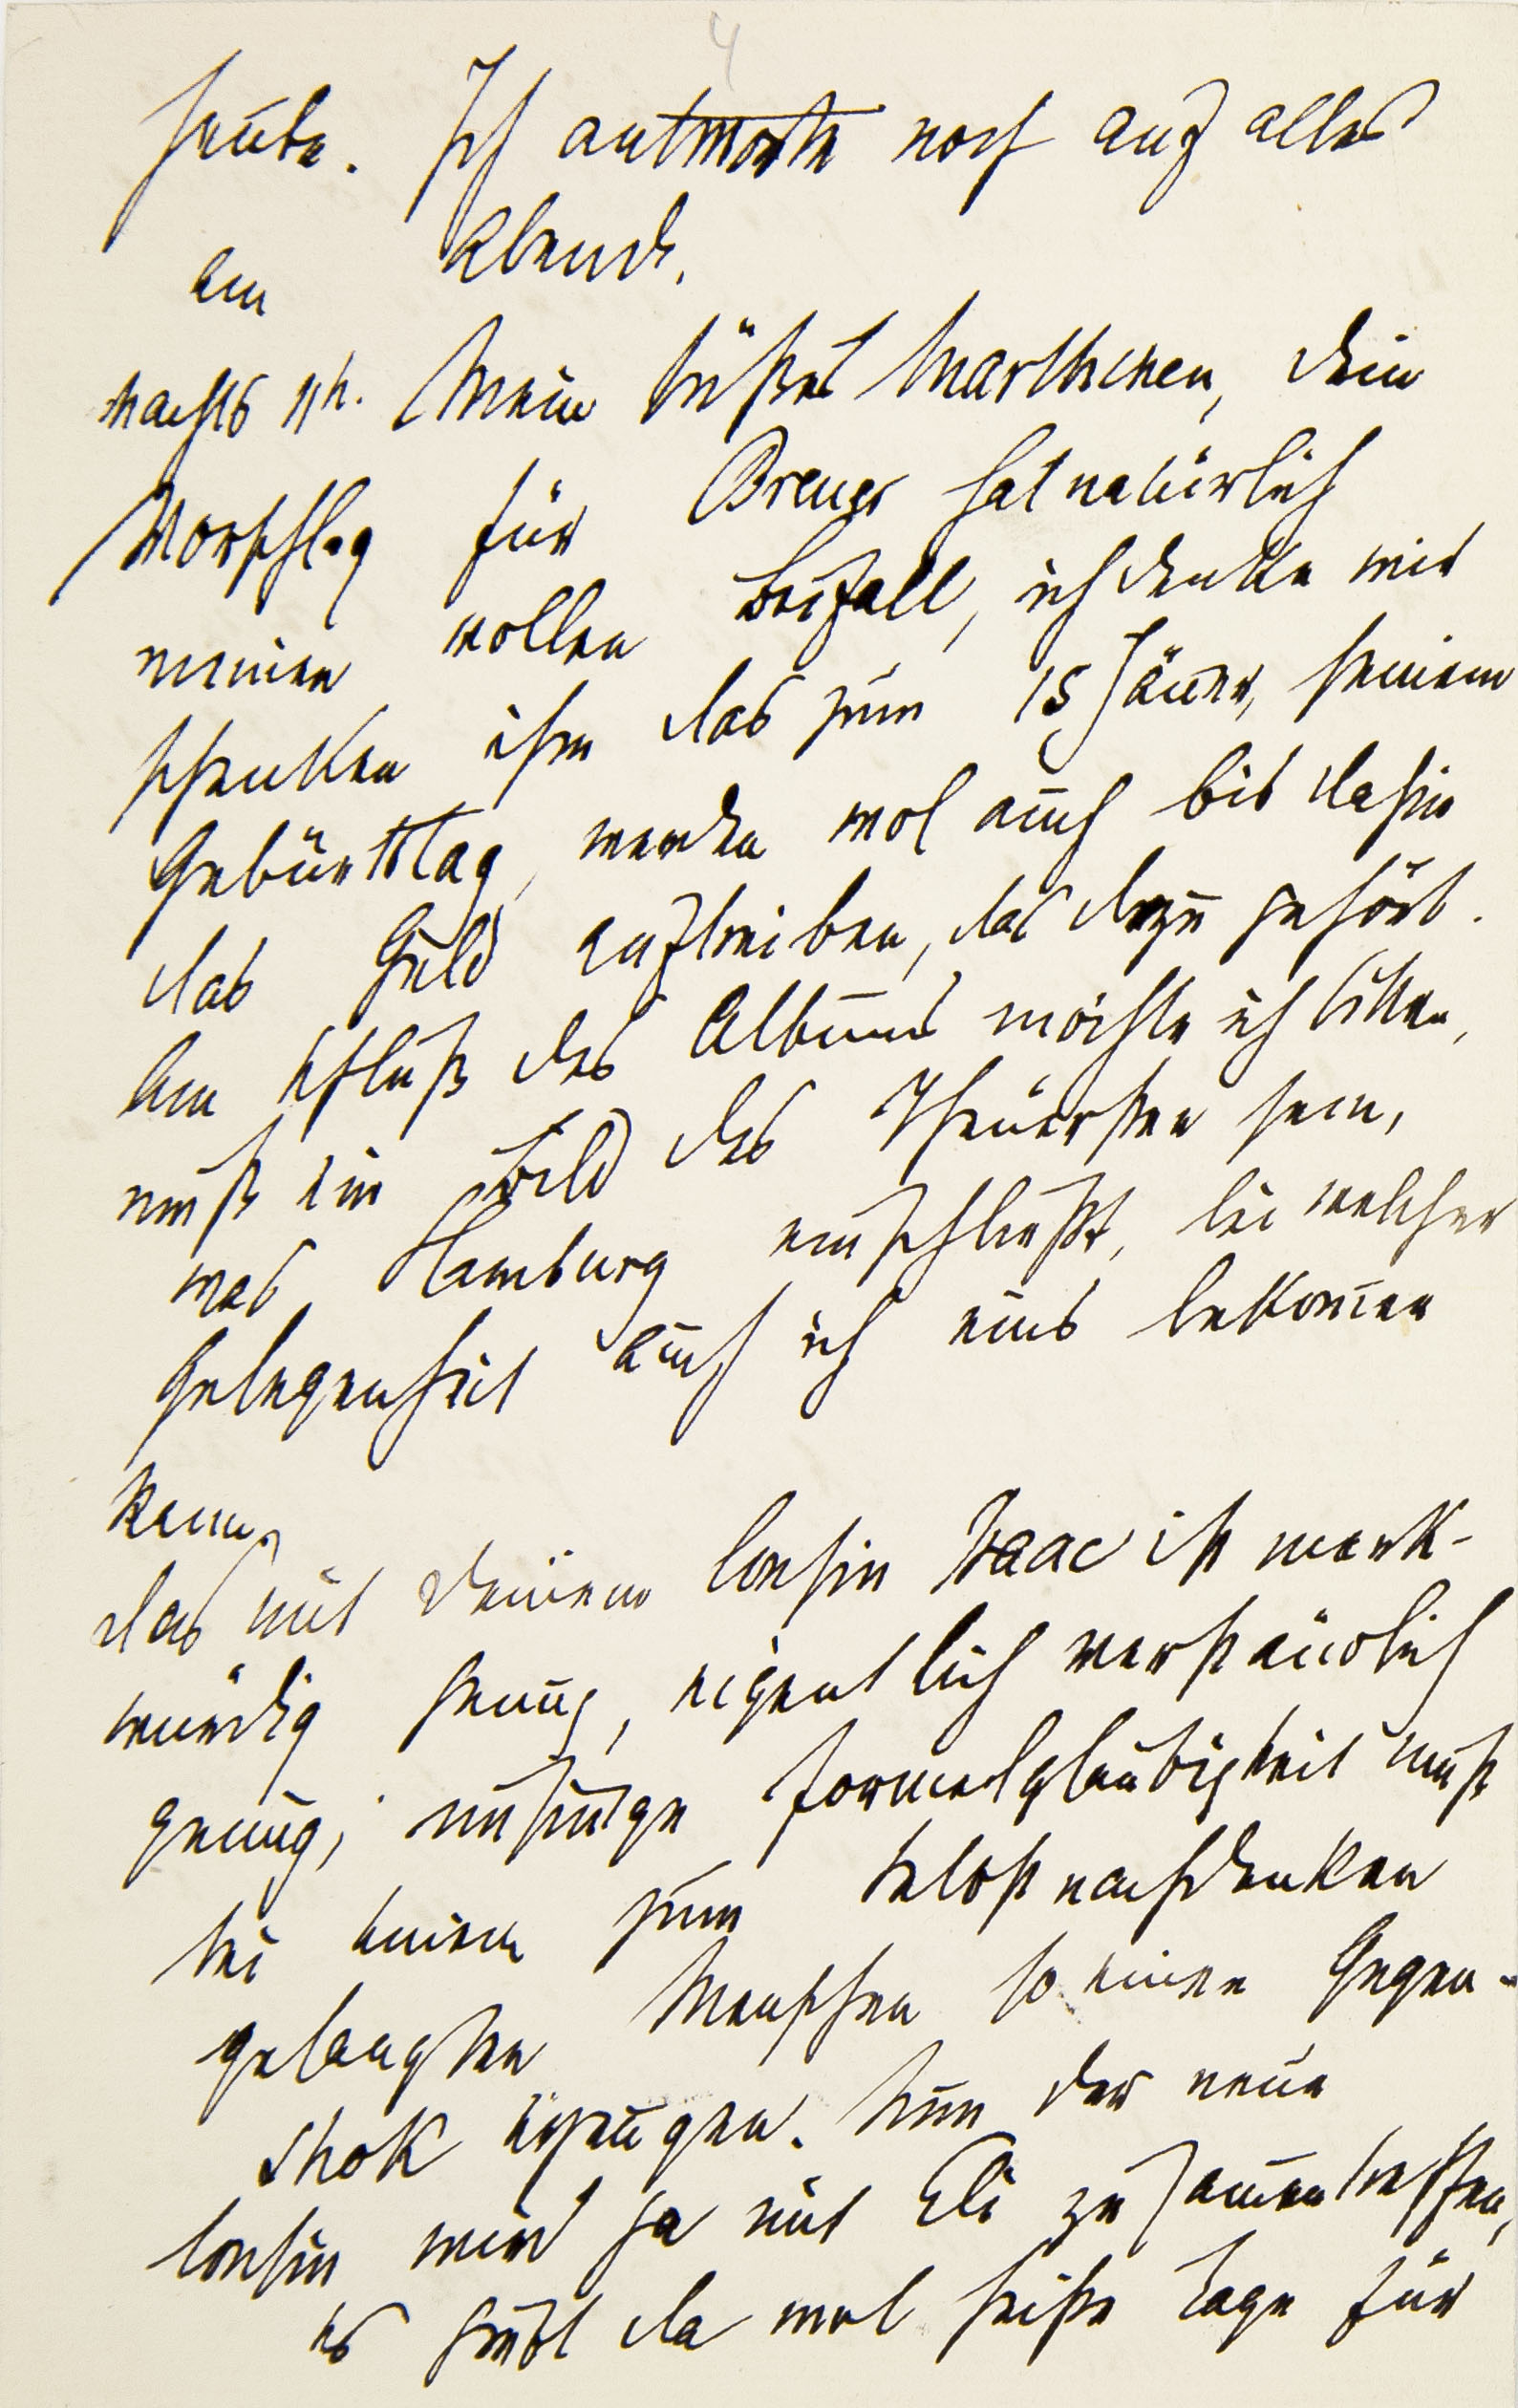 4
heute. Ich antworte noch auf alles
am Abend.
nachts 1h. Mein süßes Marthchen, dein
Vorschlag für Breuer hat natürlich
meinen vollen Beifall, ich denke wir
schenken ihm das zum 15 Jänner, seinem
Geburtstag, werden wol auch bis dahin
das Geld auftreiben, das dazu gehört.
Am Schluß des Albums möchte ich bitten,
muß ein Bild des Theuersten sein,
was Hamburg einschließt, bei welcher
Gelegenheit auch ich eins bekommen
kann.
Das mit deinem Cousin Isaac ist merk-
würdig genug, eigentlich verständlich
genug, unsinnige Formelgläubigkeit muß
bei einem zum Selbstnachdenken
gelangten Menschen so einen Gegen-
shok erzeugen. Nun der neue
Cousin wird ja mit Eli zusammentreffen,
es giebt da wol heiße Tage für